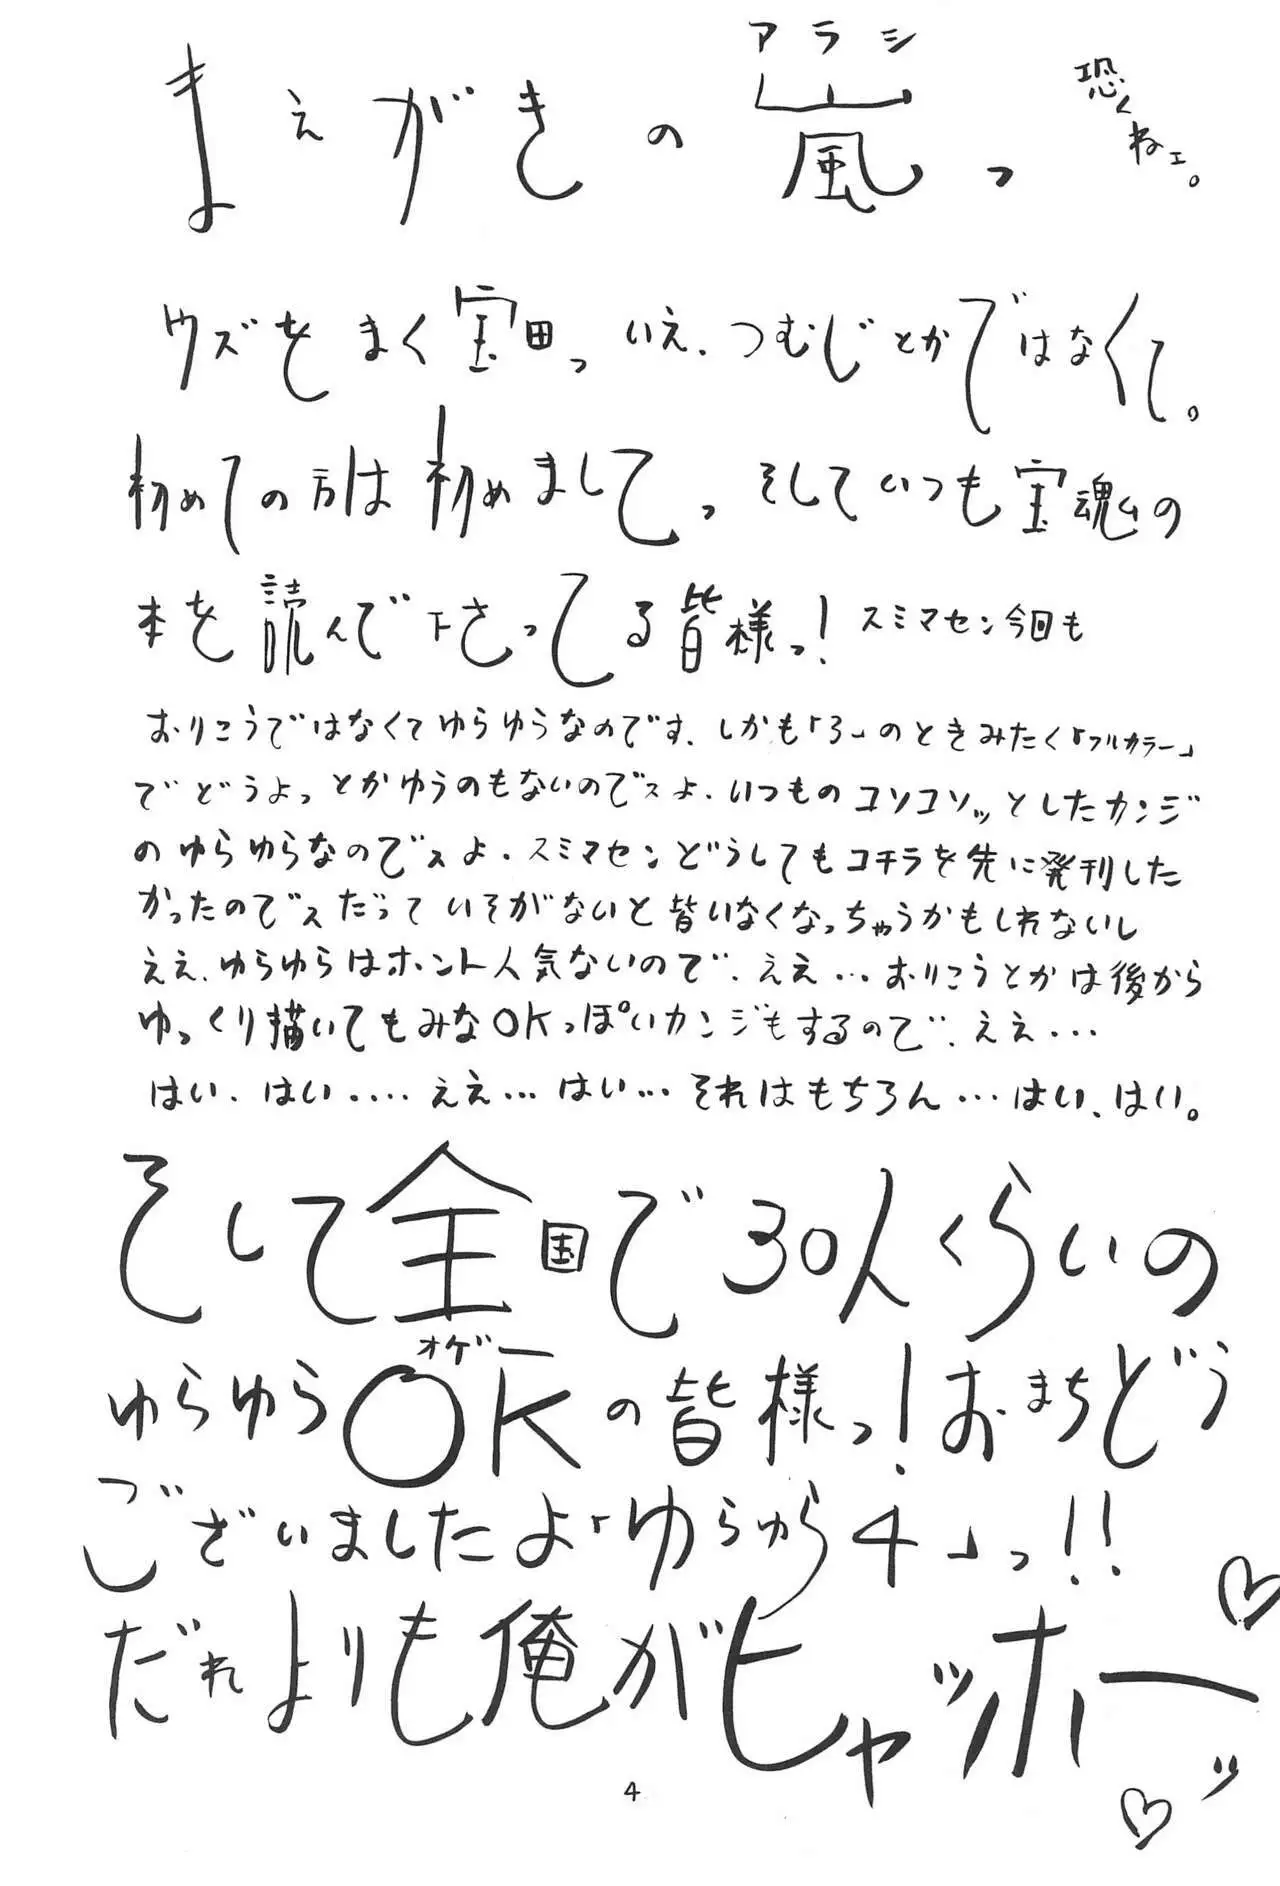 アラシ
まえがきの嵐っ 恐くねェ。
ウズをまく宝田っ いえ、つむじとかではなくて。
初めての方は初めまして っ そしていつも宝魂の
本を読んで下さってる皆様っ! スミマセン今回も
おりこうではなくてゆらゆらなのです、しかも「3」のときみたく「フルカラー」
でどうよっとかゆうのもないのでスよ、いつものコソコソッとしたカンジ
のゆらゆらなのでスよ、スミマセンどうしてもコチラを先に発刊した
かったのでスだっていそがないと皆いなくなっちゃうかもしれないし
ええ、ゆらゆらはホント人気ないので、ええ…おりこうとかは後から
ゆっくり描いてもみなOKっぽいカンジもするので、ええ…
はい、はい‥‥ええ…はい…それはもちろん…はい、はい。
そして全国で30人くらいの
オゲー
ゆらゆらOKの皆様っ!おまちどう
ございましたよ「ゆらゆら4」っ!!
だれよりも俺がヒャッホーッ
4